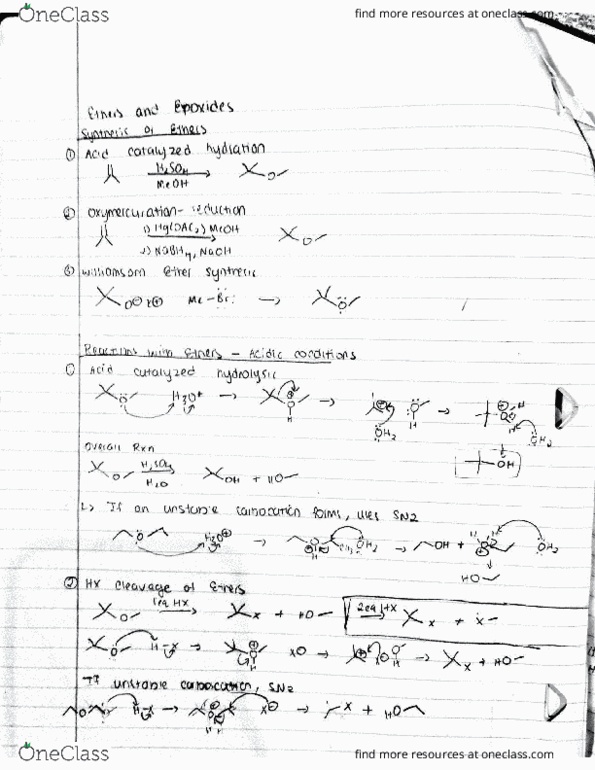 OneClass
find more resources at oneclass.com
Ethers and Epoxides
Synthesis of Ethers
① Acid catalyzed hydration
H₂SO₄
MeOH
O
② Oxymercuration-reduction
1) Hg(OAc)₂, MeOH
2) NaBH₄, NaOH
O
③ Williamson Ether Synthesis
O⊖ Me-Br: → O
Reactions with Ethers - Acidic conditions
① Acid catalyzed hydrolysis
O H₃O⁺ → O H → O H OH₂ → H OH₂
OH
Overall Rxn
H₂SO₄
O H₂O OH + HO
↳ If an unstable carbocation forms, uses SN2
O H₃O⊕ → O H OH₂ → OH + OH₂
HO
② HX cleavage of Ethers
O 1eq HX → X + HO 2eq HX → X + X
O H-X → O H X⊖ → O H → X + HO
If unstable carbocation, SN2
O H-X → O H X⊖ → X + HO
OneClass
find more resources at oneclass.com